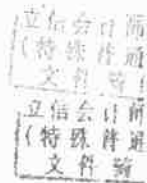 立信会计师
(特殊普通
文件骑
立信会计师
(特殊普通
文件骑